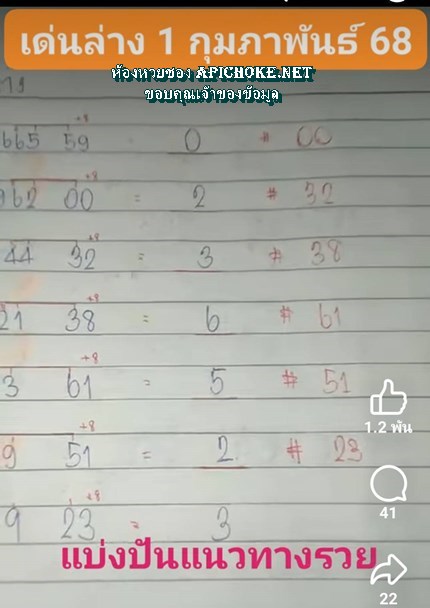 เด่นล่าง 1 กุมภาพันธ์ 68
ห้องหวยซอง APICHOKE.NET
ขอบคุณเจ้าของข้อมูล
+8
665 59 0 # 00
962 00 = 2 # 32
+8
44 32 = 3 # 38
+8
21 38 = 6 # 61
+8
3 61 = 5 # 51
1.2 พัน
+8
9 51 = 2 # 23
41
+8
9 23 = 3
แบ่งปันแนวทางรวย
22